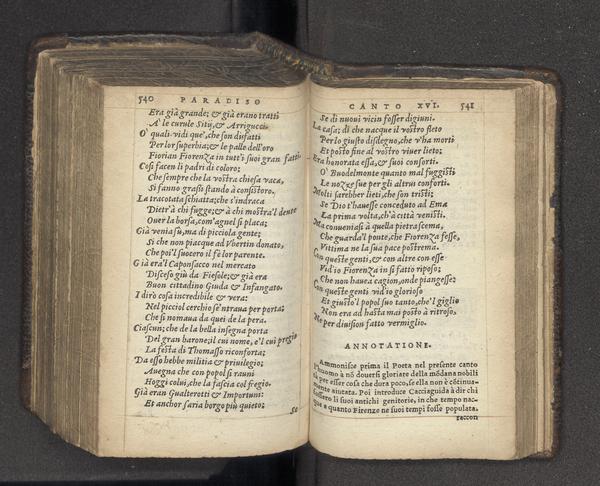 540 PARADISO
Era già grande; & già erano tratti
A' le curule Sitij, & Arrigucci.
O' quali vidi que', che son disfatti
Per lor superbia; & le palle dell'oro
Fiorian Fiorenza in tutt'i suoi gran fatti.
Così facen li padri di coloro;
Che sempre che la vostra chiesa vaca,
Si fanno grassi stando à consistoro.
La tracotata schiatta; che s'indraca
Dietr'à chi fugge; & à chi mostra'l dente
Ouer la borsa, com'agnel si placa;
Già venia sù, ma di picciola gente;
Sì che non piacque ad Vbertin donato,
Che poi'l suocero il fè lor parente.
Già era'l Caponsacco nel mercato
Disceso giù da Fiesole; & già era
Buon cittadino Giuda & Infangato.
I dirò cosa incredibile & vera:
Nel picciol cerchio s'entraua per porta;
Che si nomaua da quei de la pera.
Ciascun; che de la bella insegna porta
Del gran barone; il cui nome, e'l cui pregio
La festa di Thomasso riconforta;
Da esso hebbe militia & priuilegio;
Auegna che con popol si rauni
Hoggi colui, che la fascia col fregio.
Già eran Gualterotti & Importuni:
Et anchor saria borgo più quieto;
Se
CANTO XVI. 541
Se di nuoui vicin fosser digiuni.
La casa; di che nacque il vostro fleto
Per lo giusto disdegno, che v'ha morti
Et posto fine al vostro viuer lieto;
Era honorata essa, & suoi consorti.
O' Buodelmonte quanto mal fuggisti
Le nozze sue per gli altrui conforti.
Molti sarebber lieti, che son tristi;
Se Dio t'hauesse conceduto ad Ema
La prima volta, ch'à città venisti.
Ma conueniasi à quella pietra scema,
Che guarda'l ponte, che Fiorenza fesse,
Vittima ne la sua pace postrema.
Con queste genti, & con altre con esse
Vid'io Fiorenza in sì fatto riposo;
Che non hauea cagion, onde piangesse:
Con queste genti vid'io glorioso
Et giusto'l popol suo tanto, che'l giglio
Non era ad hasta mai posto à ritroso,
Ne per diuision fatto vermiglio.
ANNOTATIONE.
Ammonisce prima il Poeta nel presente canto
l'huomo à nō douersi gloriare della mōdana nobili
tà per esser cosa che dura poco, se ella non è cōtinua-
mente aiutata. Poi introduce Cacciaguida à dir chi
fossero li suoi antichi genitorie, in che tempo nac-
que a quanto Firenze ne suoi tempi fosse populata.
faccon